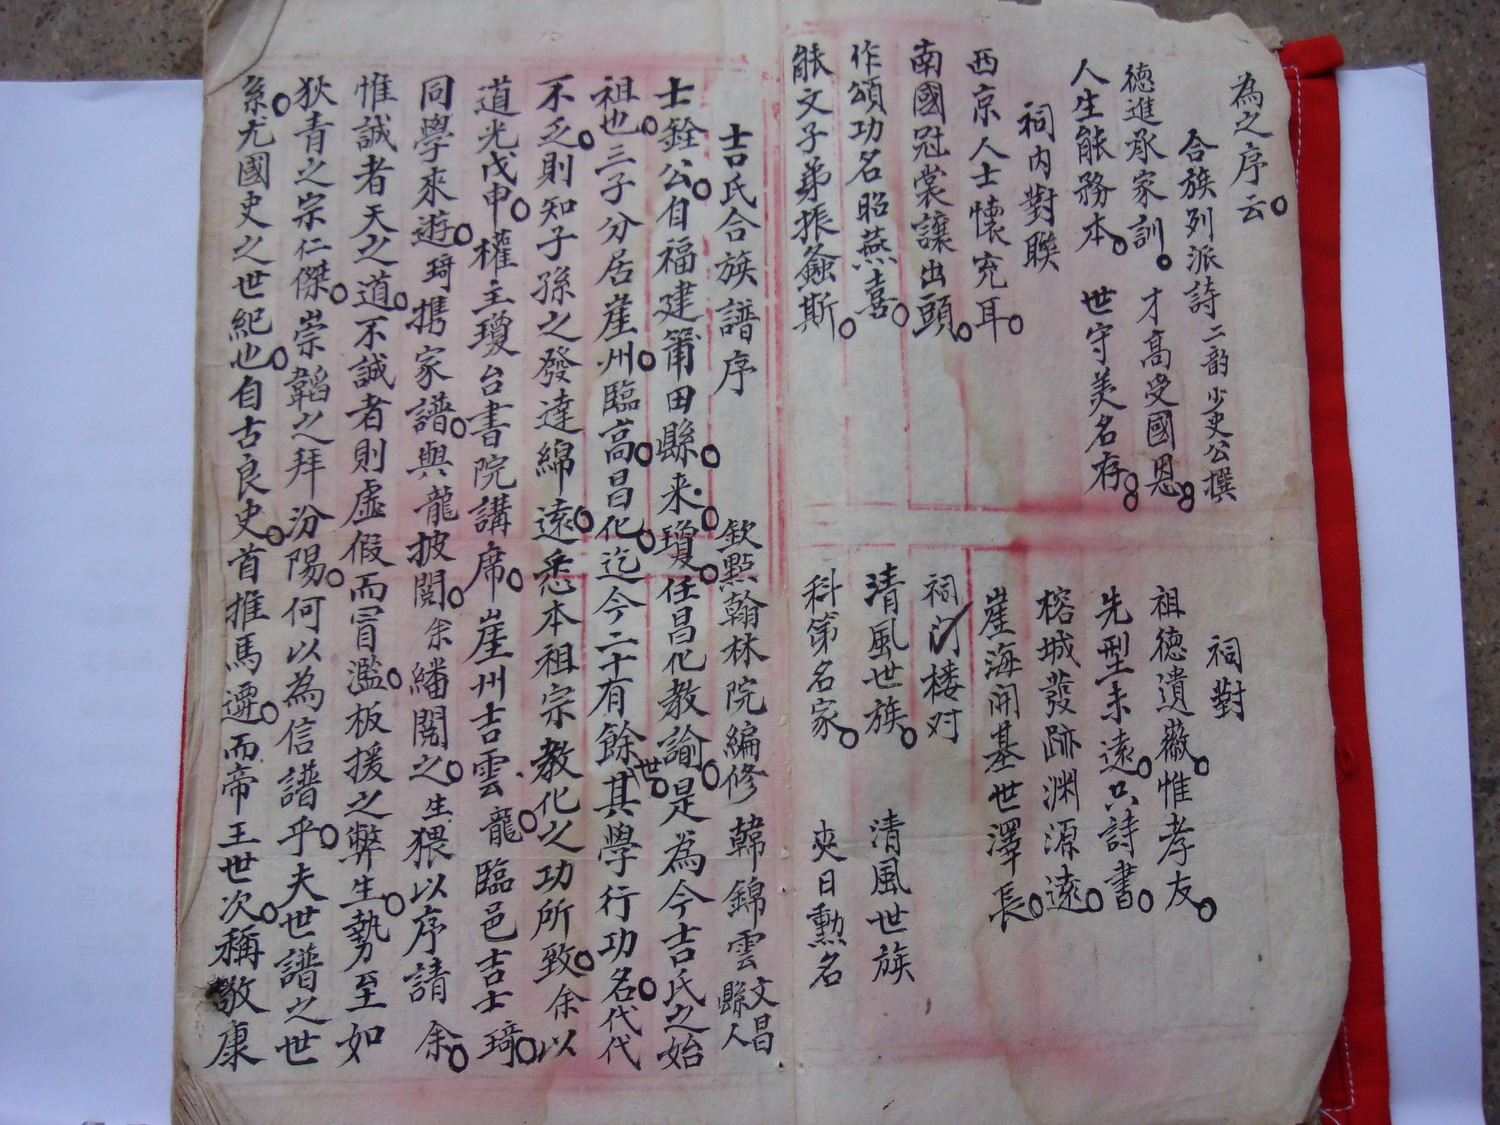 為之序云
合族列派詩 二韵少吏公撰
德進承家訓 才高受國恩
人生能務本 世守美名存
祠內對聯
西京人士懷充耳
南國冠裳讓出頭
作頌功名昭燕喜
能文子弟振螽斯
祠對
祖德遺徽惟孝友
先型未遠只詩書
榕城發跡渊源遠
崖海開基世澤長
祠门楼对
清風世族 清風世族
科第名家 奕日勳名
吉氏合族譜序 欽點翰林院編修 韓錦雲 文昌縣人
士銓公自福建莆田縣来瓊任昌化教諭是為今吉氏之始
祖也三子分居崖州臨高昌化迄今二十有餘世其學行功名代代
不乏則知子孫之發達綿遠悉本祖宗教化之功所致余以
道光戊申權主瓊台書院講席崖州吉雲龍臨邑吉士琦
同學來遊琦携家譜與龍披閲余繙閲之生猥以序請余
惟誠者天之道不誠者則虛假而冒濫板援之弊生勢至如
狄青之宗仁傑崇韜之拜汾陽何以為信譜乎夫世譜之世
系尤國史之世紀也自古良史首推馬遷而帝王世次稱敬康